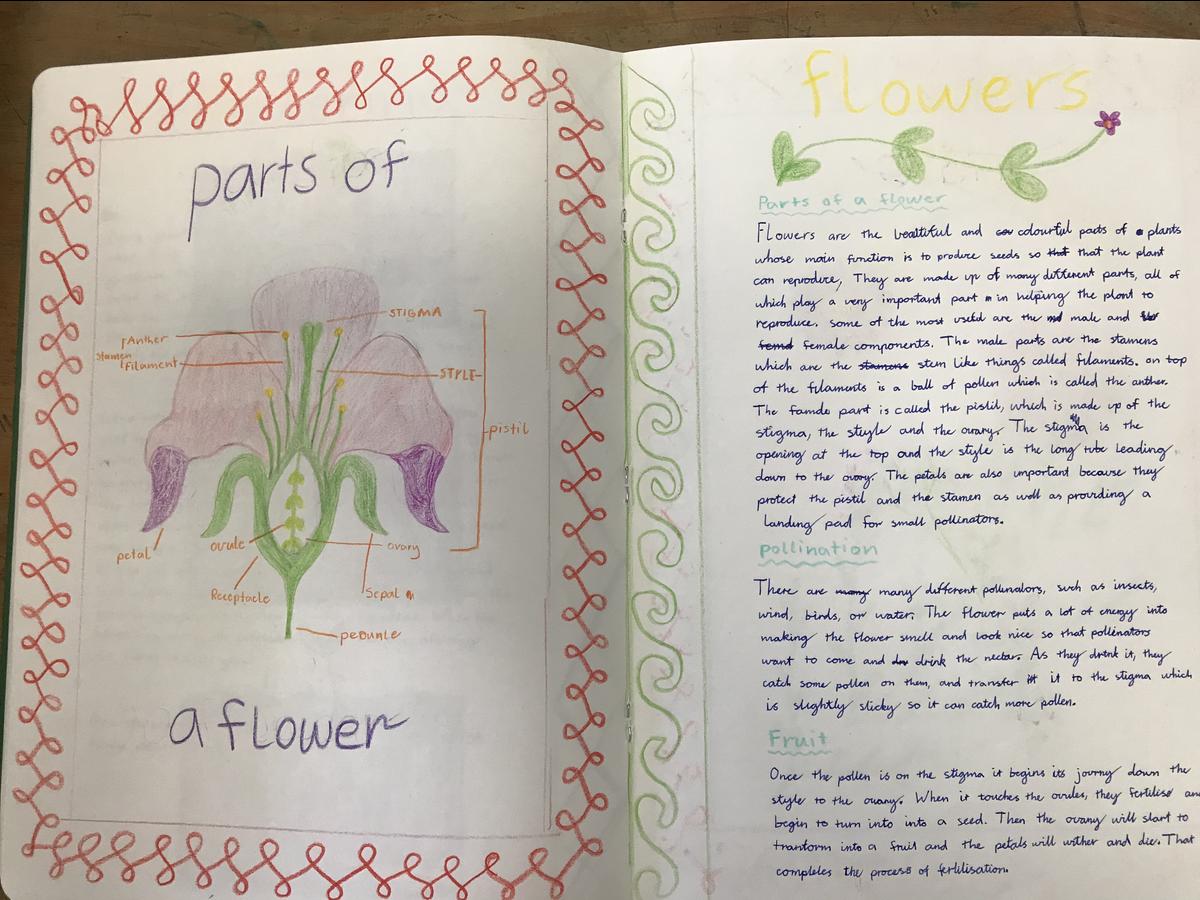 parts of
STIGMA
Anther
Stamen
Filament
STYLE
pistil
petal
ovule
ovary
Receptacle
Sepal
pedunle
a flower
flowers
Parts of a flower
Flowers are the beautiful and colourful parts of plants
whose main function is to produce seeds so that that the plant
can reproduce, They are made up of many different parts, all of
which play a very important part in helping the plant to
reproduce. Some of the most useful are the male and
female components. The male parts are the stamens
which are the stamens stem like things called filaments. on top
of the filaments is a ball of pollen which is called the anther.
The famale part is called the pistil, which is made up of the
stigma, the style and the ovary. The stigma is the
opening at the top and the style is the long tube leading
down to the ovary. The petals are also important because they
protect the pistil and the stamen as well as providing a
landing pad for small pollinators.
pollination
There are many many different pollinators, such as insects,
wind, birds, or water. The flower puts a lot of energy into
making the flower smell and look nice so that pollinators
want to come and drink the nectar. As they drink it, they
catch some pollen on them, and transfer it it to the stigma which
is slightly sticky so it can catch more pollen.
Fruit
Once the pollen is on the stigma it begins its journy down the
style to the ovary. When it touches the ovules, they fertilise and
begin to turn into into a seed. Then the ovary will start to
tranform into a fruit and the petals will wither and die. That
completes the process of fertilisation.